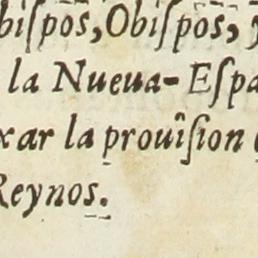 biſpõs, Obiſpõs, y
la Nueua- Eſpa
xar la prouîſion
Reynos.